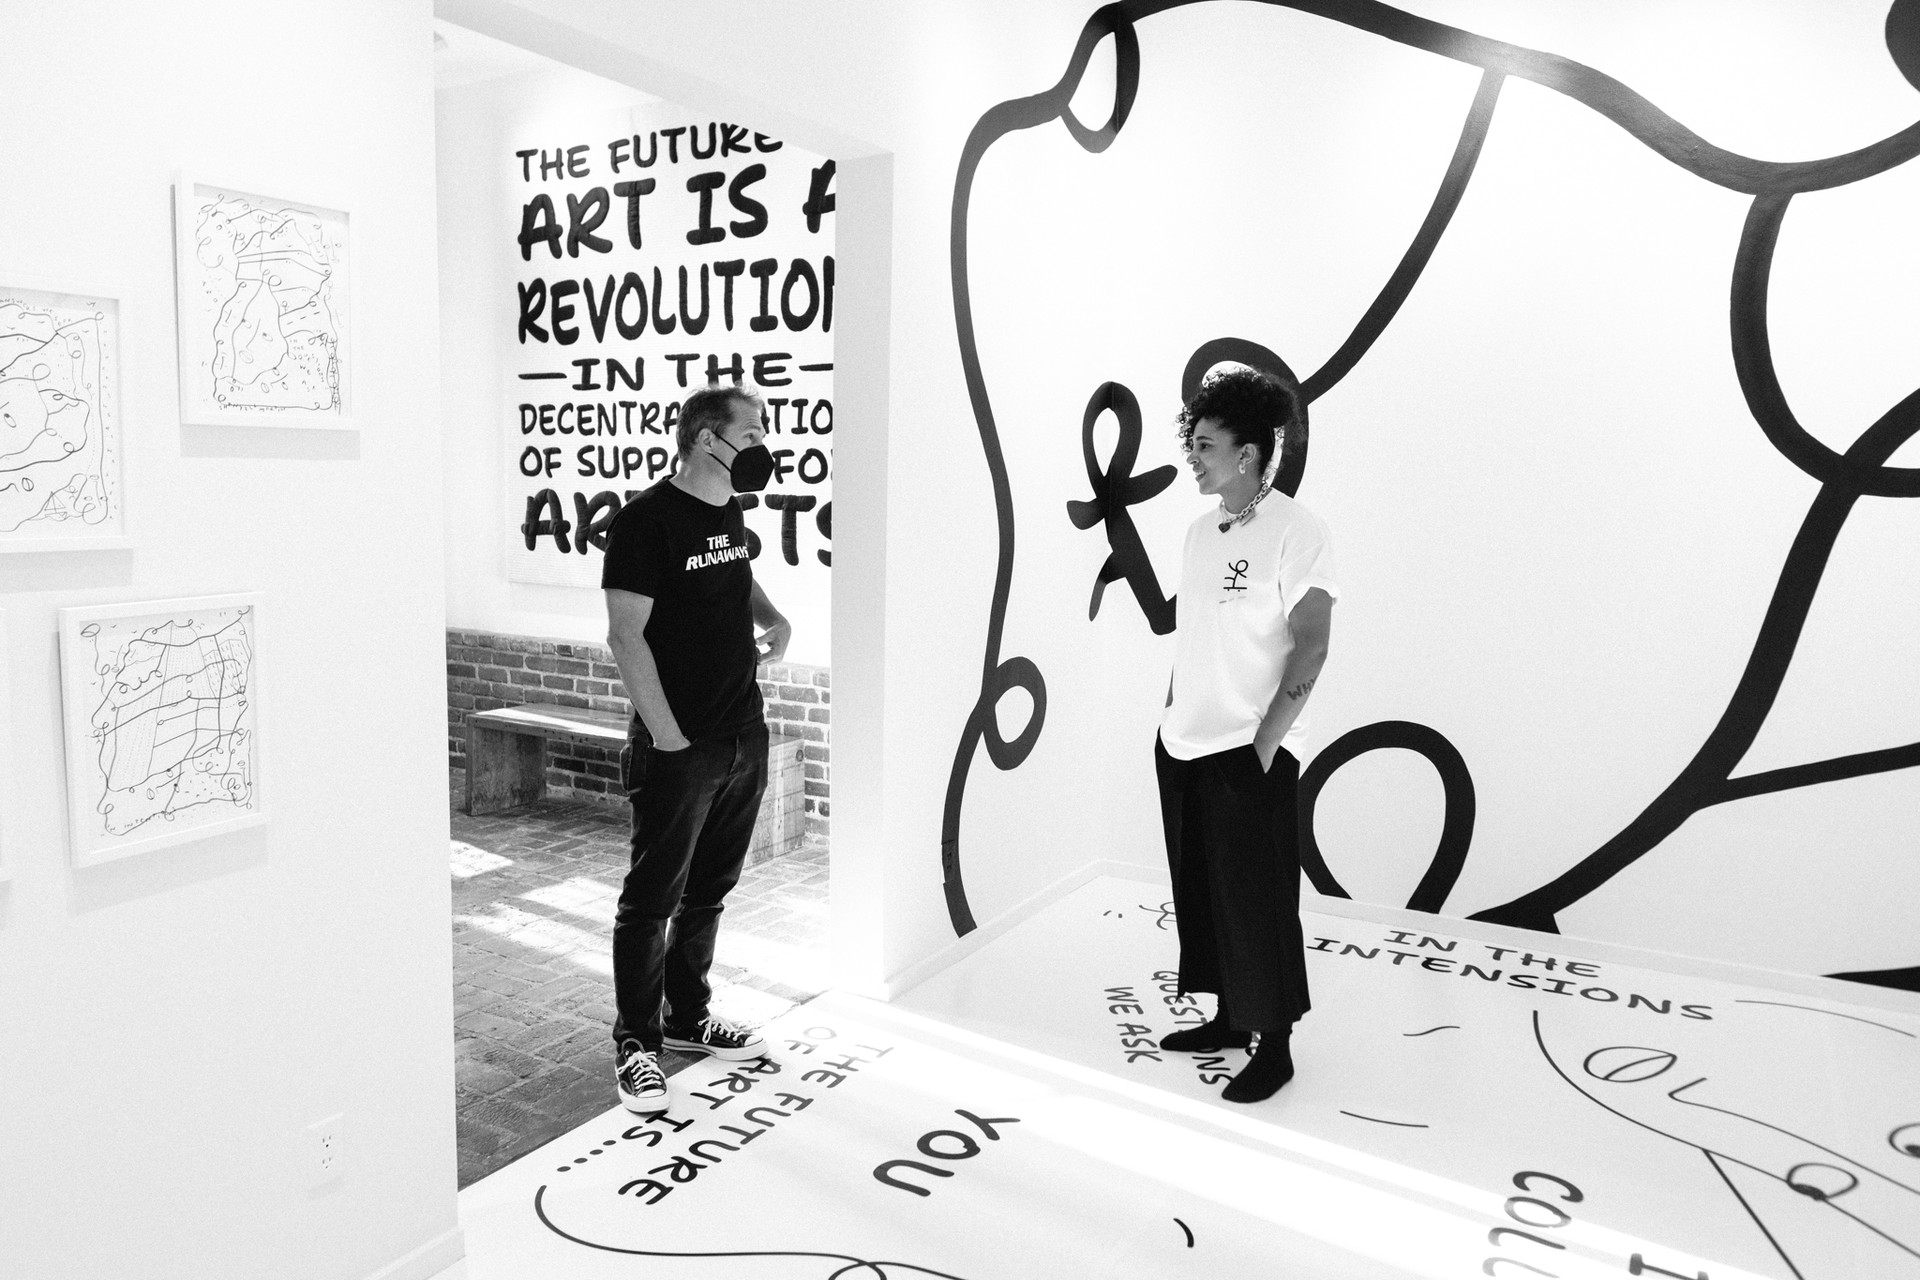 THE FUTURE
ART IS A
REVOLUTION
—IN THE—
DECENTRA ATIO
OF SUPPO FO
ARTISTS
THE
RUNAWAYS
WHY
IN THE
INTENSIONS
QUESTIONS
WE ASK
THE FUTURE
OF ART IS....
YOU
I
COLL